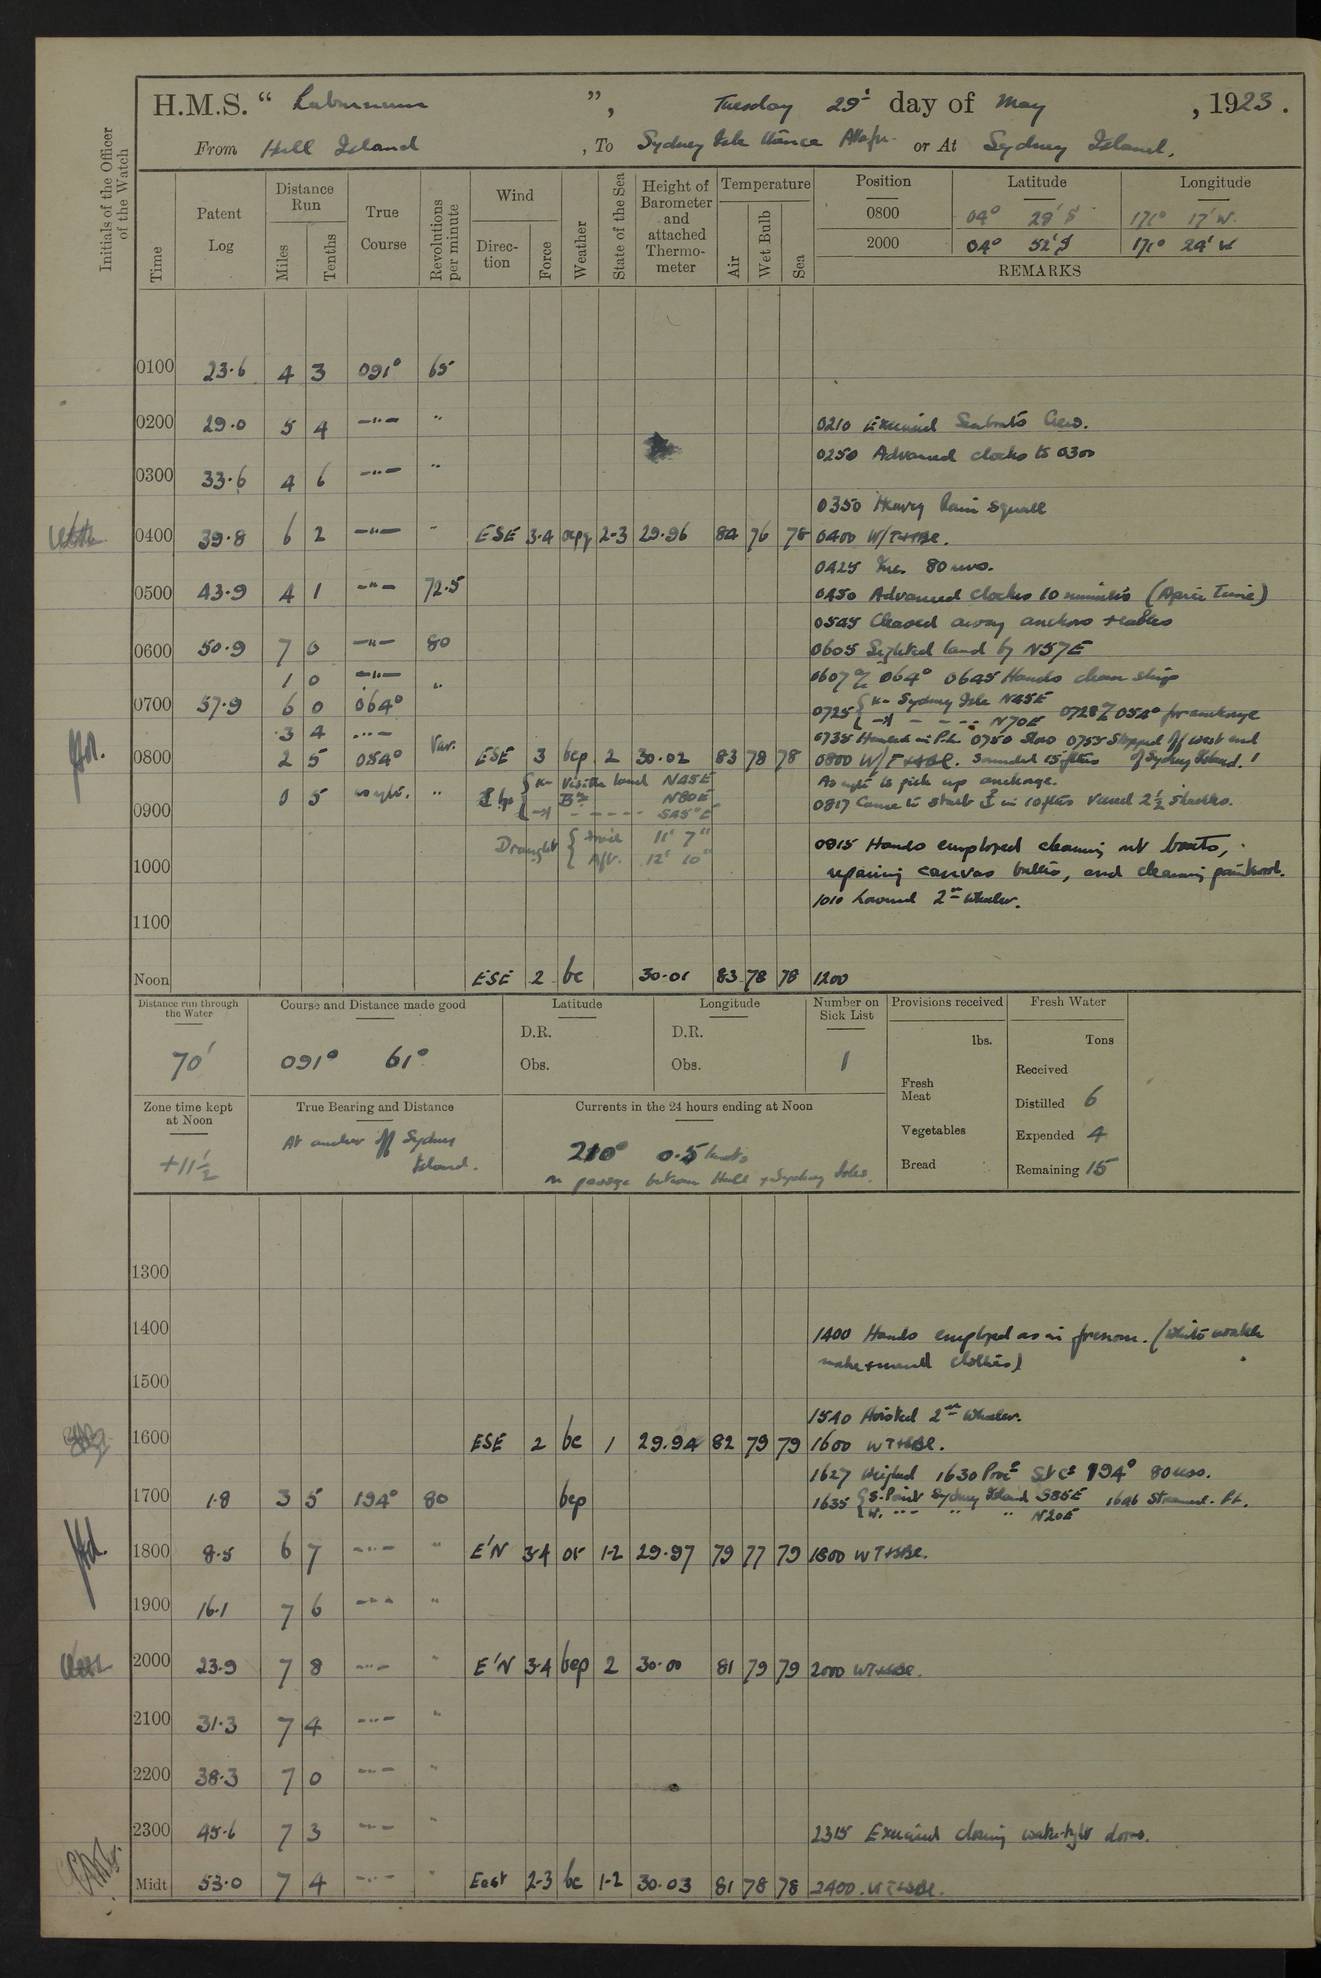 H.M.S. “ Laburnum ”, Tuesday 29th day of May , 1923.
From Hull Island , To Sydney Isle thence Atafu. or At Sydney Island.
Initials of the Officer of the Watch
Time Patent Log Distance Run Miles Tenths True Course Revolutions per minute Wind Direction Force Weather State of the Sea Height of Barometer and attached Thermometer Temperature Air Wet Bulb Sea Position Latitude Longitude
0800 04° 28' S 171° 17' W.
2000 04° 52' S 171° 24' W
REMARKS
0100 23.6 4 3 091° 65
0200 29.0 5 4 —"— " 0210 Exercised Seaboats Crew.
0250 Advanced clocks to 0300
0300 33.6 4 6 —"— "
0350 Heavy Rain Squall
0400 39.8 6 2 —"— " ESE 3.4 ocpq 2-3 29.96 84 76 78 0400 W/T+SBE.
0425 Inc. 80 revs.
0500 43.9 4 1 —"— 72.5 0450 Advanced clocks 10 minutes (Apia Time)
0545 Cleared away anchors + cables
0600 50.9 7 0 —"— 80 0605 Sighted land by N57E
1 0 —"— " 0607 a/c 064° 0645 Hands clean ship
0700 57.9 6 0 064° 0725 { Sydney Isle N45E
— - - - N70E 0728 a/c 054° for anchorage
3 4 —"— 0735 Hauled in P.L. 0750 Slow 0755 Stopped off west end
0800 2 5 054° Var. ESE 3 bcp 2 30.02 83 78 78 0800 W/T+SBE. Sounded 15 fths of Sydney Island.
0 5 as reqte. " Visible land N45E As reqte to pick up anchorage.
Bn N80E
0900 - - - - - S45°E 0817 Came to starb in 10 fths veered 2½ shackles.
Draught { For'd 11' 7"
Aft. 12' 10"
0915 Hands employed cleaning out boats,
1000 repairing canvas , and cleaning paintwork.
1010 Lowered 2nd Whaler.
1100
Noon ESE 2 bc 30.01 83 78 78 1200
Distance run through the Water Course and Distance made good Latitude Longitude Number on Sick List Provisions received Fresh Water
70' 091° 61° D.R. D.R. 1 lbs. Tons
Obs. Obs. Fresh Meat Received
Zone time kept at Noon True Bearing and Distance Currents in the 24 hours ending at Noon Distilled 6
+11½ At anchor off Sydney Island. 210° 0.5 knots Vegetables Expended 4
on passage between Hull + Sydney Isles. Bread Remaining 15
1300
1400 1400 Hands employed as in forenoon. (
make + mend clothes)
1500
1540 Hoisted 2nd Whaler.
1600 ESE 2 bc 1 29.94 82 79 79 1600 WT+SBE.
1627 Weighed 1630 Procd S/Co 194° 80 revs.
1700 1.8 3 5 194° 80 bcp 1635 { S. Point Sydney Island S85E 1646 Streamed P.L.
W. " " " N20E
1800 8.5 6 7 —"— " E'N 3.4 or 1-2 29.97 79 77 79 1800 WT+SBE.
1900 16.1 7 6 —"— "
2000 23.9 7 8 —"— " E'N 3.4 bcp 2 30.00 81 79 79 2000 WT+SBE.
2100 31.3 7 4 —"— "
2200 38.3 7 0 —"— "
2300 45.6 7 3 —"— " 2315 Exercised closing water-tight doors.
Midt 53.0 7 4 —"— " East 2-3 bc 1-2 30.03 81 78 78 2400. WT+SBE.